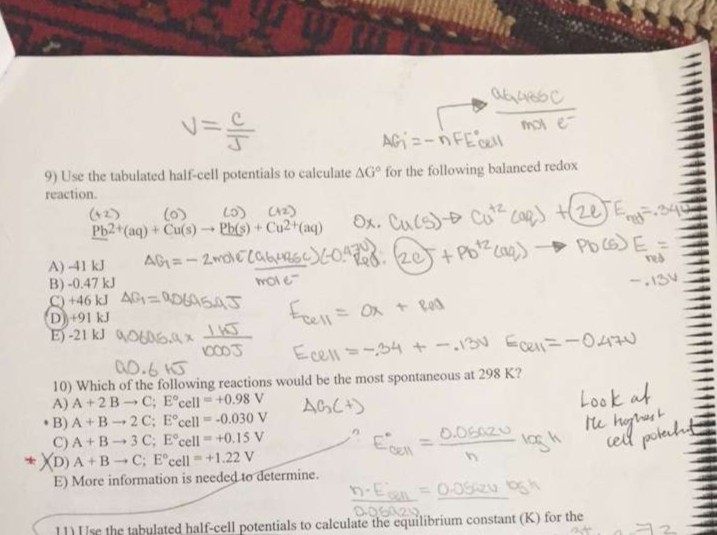 V = C/J
96,485C
mol e⁻
ΔG° = -nFE°cell
9) Use the tabulated half-cell potentials to calculate ΔG° for the following balanced redox
reaction.
(+2) (0) (0) (+2)
Pb2+(aq) + Cu(s) → Pb(s) + Cu2+(aq)
Ox. Cu(s) → Cu+2 (aq) + 2e E red = .34V
Red. 2e + Pb+2 (aq) → Pb(s) E red = -.13V
A) -41 kJ
B) -0.47 kJ
C) +46 kJ
D) +91 kJ
E) -21 kJ
mol e⁻
90.6 kJ
1 kJ
1000J
Ecell = Ox + Red
Ecell = -.34 + -.13V Ecell = -0.47V
10) Which of the following reactions would be the most spontaneous at 298 K?
A) A + 2 B → C; E°cell = +0.98 V
• B) A + B → 2 C; E°cell = -0.030 V
C) A + B → 3 C; E°cell = +0.15 V
* X D) A + B → C; E°cell = +1.22 V
E) More information is needed to determine.
ΔG(+)
Look at
the highest
cell potential
?
E°cell = 0.0592V/n log k
n·E°cell = 0.0592V log k
0.0592V
11) Use the tabulated half-cell potentials to calculate the equilibrium constant (K) for the